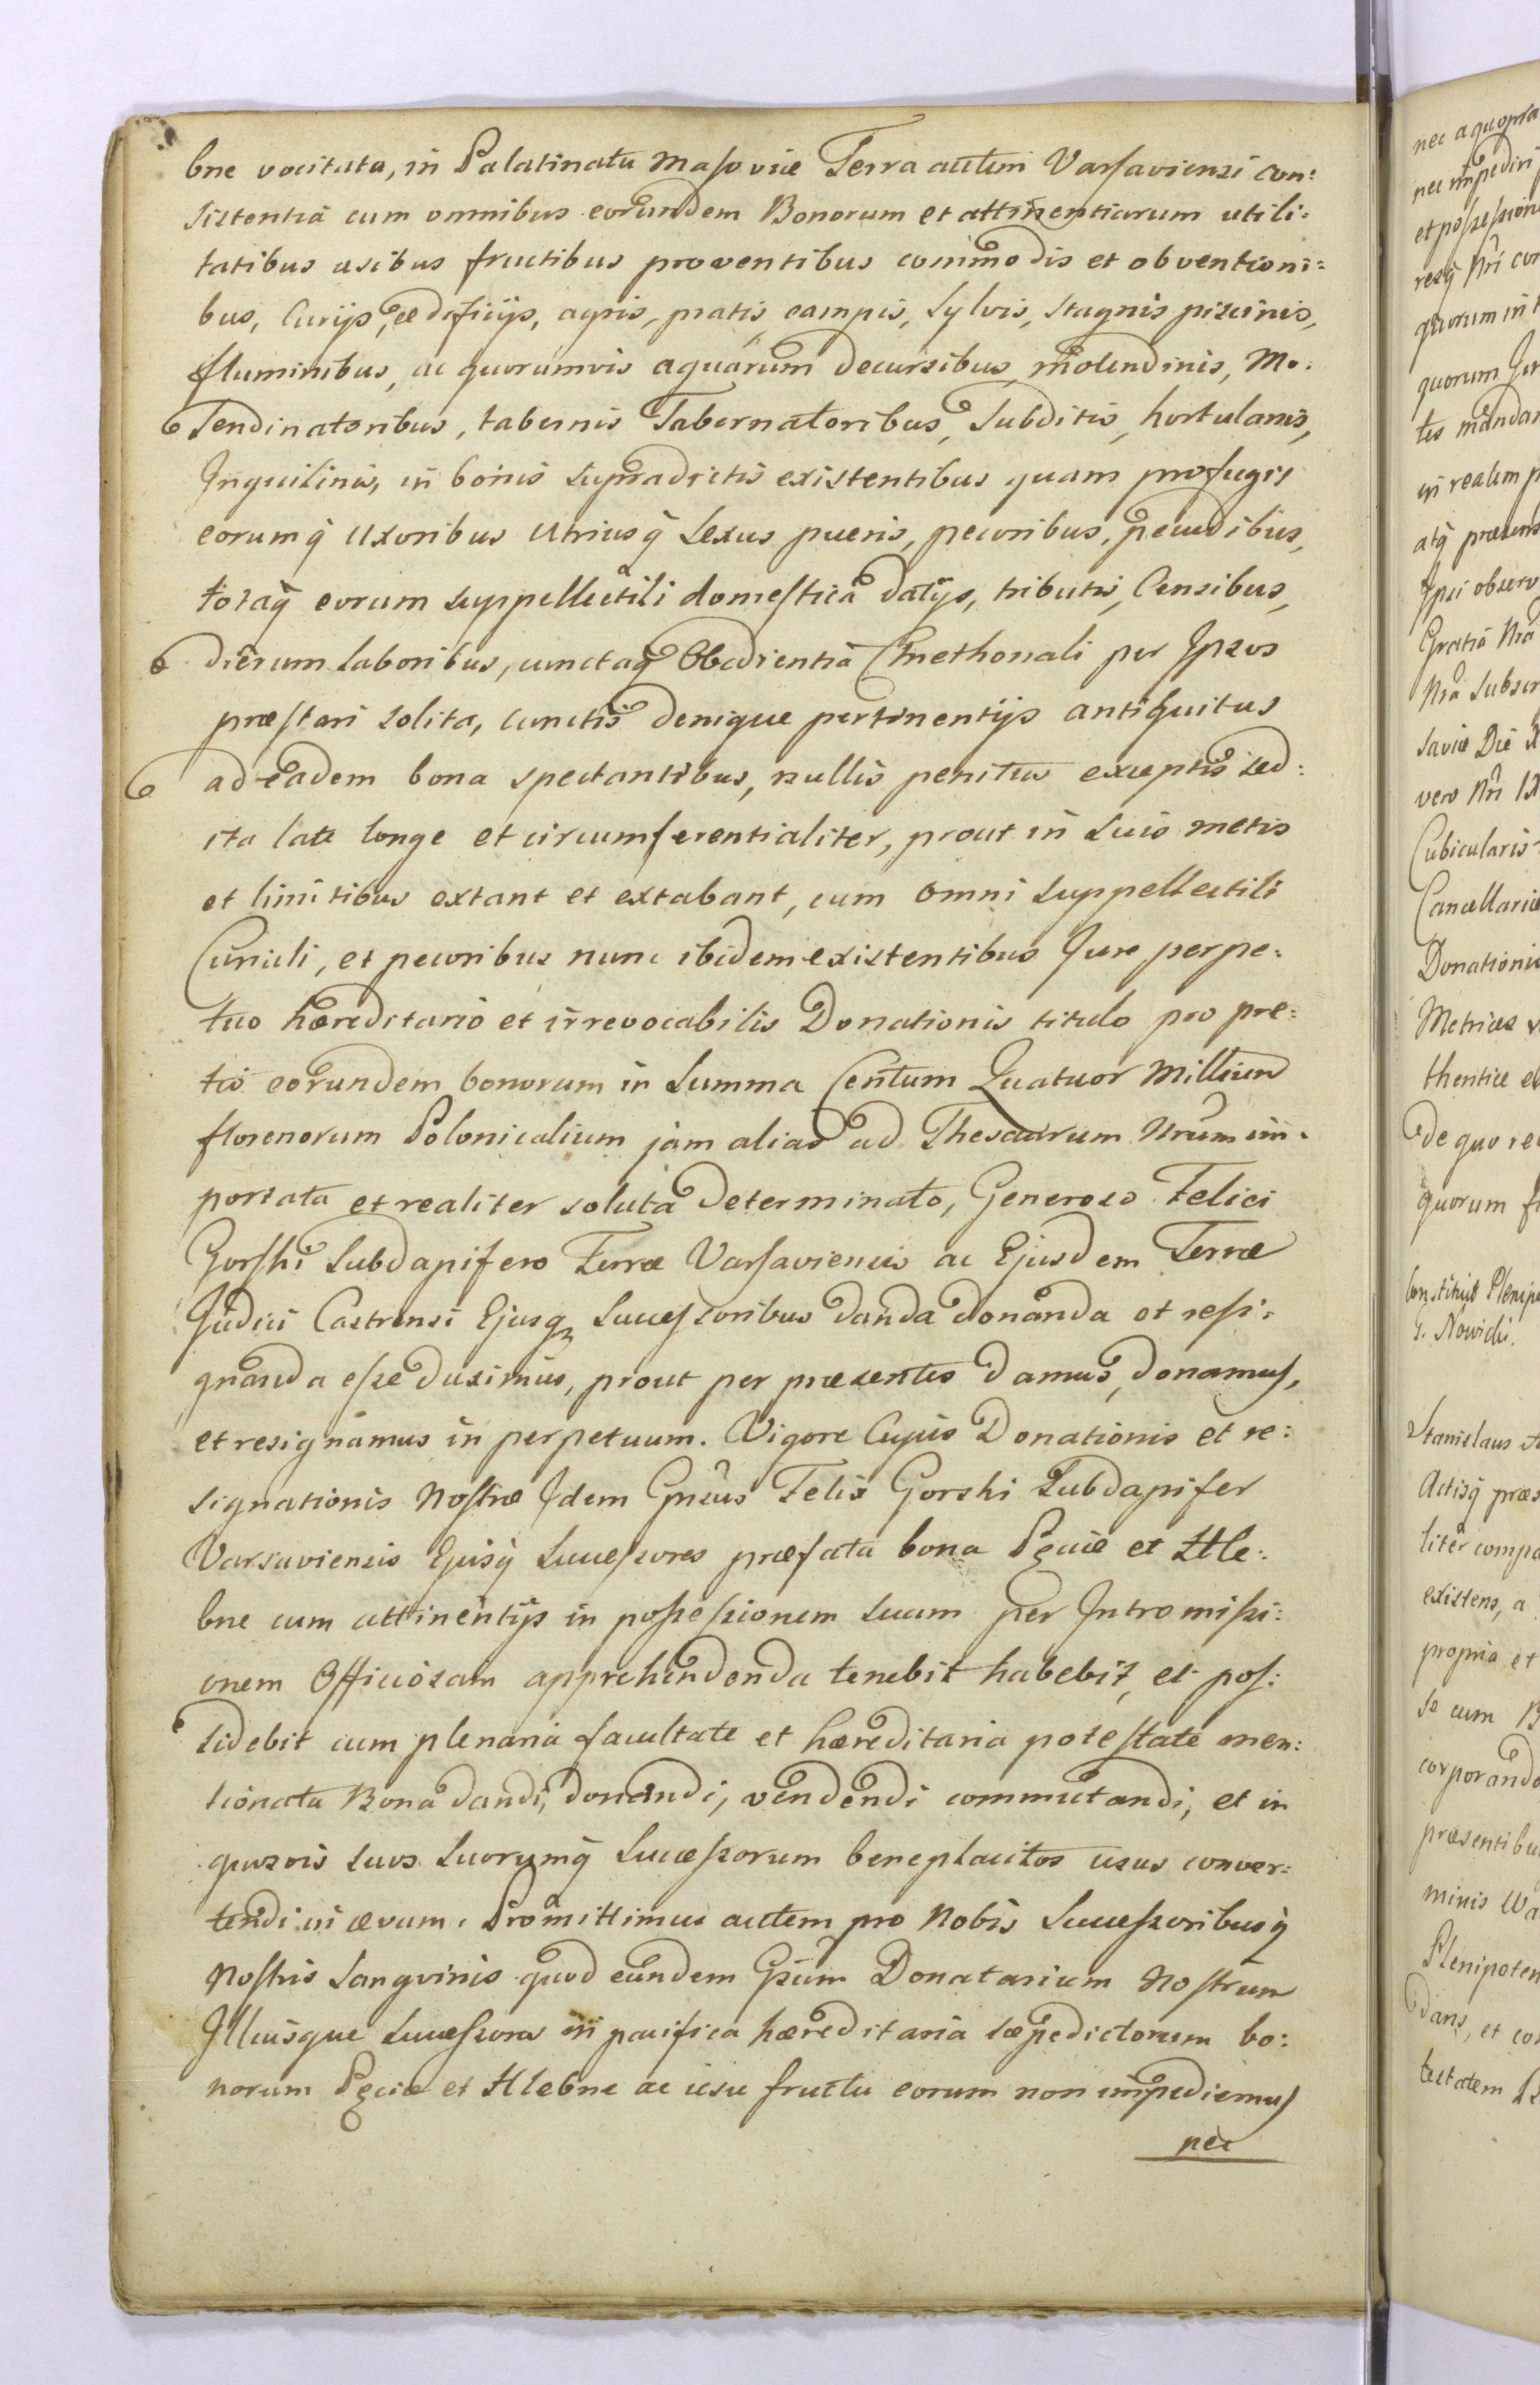 bne vocitata, in Palatinatu Masoviæ Terra autem Varsaviensi con:
sistentia cum omnibus eorundem Bonorum et attinentiarum utili:
tatibus usibus fructibus proventibus commodis et obventioni:
bus, Curijs, ædificijs, agris, pratis, campis, Sylvis, stagnis piscinis,
fluminibus, ac quorumvis aquarum decursibus, molendinis, Mo:
lendinatoribus, tabernis Tabernatoribus, Subditis, hortulanis,
Inquilinis, in bonis supradictis existentibus quam profugis
eorumq̃ Uxoribus Utriusq̃ Sexus pueris, pecoribus, pecudibus,
totaq̃ eorum suppellectili domestica datijs, tributis, Censibus,
dierum laboribus, cunctaq̃ Obedientia Cmethonali per Ipsos
præstari solita, cunctis denique pertinentijs antiquitus
ad eadem bona spectantibus, nullis penitus exceptis sed:
ita late longe et circumferentialiter, prout in suis metis
et limitibus extant et extabant, cum omni suppellectili
Curiali, et pecoribus nunc ibidem existentibus Jure perpe:
tuo hæreditario et irrevocabilis Donationis titulo pro pre:
tio eorundem bonorum in Summa Centum Quatuor Millium
florenorum Polonicalium jam alias ad Thesaurum Nrum im:
portata et realiter soluta determinato, Generoso Felici
Gorski Subdapifero Terræ Varsaviensis ac Ejusdem Terræ
Judici Castrensi Ejusq Successoribus danda donanda et resi:
gnanda esse duximus, prout per præsentes damus, donamus,
et resignamus in perpetuum. Vigore Cujus Donationis et re:
signationis Nostræ Idem Gnsus Felix Gorski Subdapifer
Varsaviensis Ejusq̃ Successores præfata bona Pęcice et Hle:
bne cum attinentijs in possessionem suam per Intromissi:
onem Officiosam apprehendenda tenebit habebit, et pos:
sidebit cum plenaria facultate et hæreditaria potestate men:
tionata Bona dandi, donandi, vendendi commutandi, et in
quosvis suos suorumq̃ Successorum beneplacitos usus conver:
tendi in ævum. Promittimus autem pro Nobis Successoribusq̃
Nostris Sangvinis quod eundem Gsum Donatarium Nostrum
Illiusque Successores in pacifica hæreditaria sæpedictorum bo:
norum Pęcice et Hlebne ac usu fructu eorum non impediemus
nec
nec impediri
quorum in
in realem
Ipsi observ
Gratia Nra
Nra subscr
saviæ Die
vero Nri IX
Cubicularis
Cancellariæ
Donationis
Metrices
thentice
de quo re
quorum
Constituit Plenip
G. Nowicki.
Stanislaus
Actisq̃ præs
liter compa
existens, a
propria et
se cum
corporando
præsentibu
minis
Plenipoten
dans, et
testatem